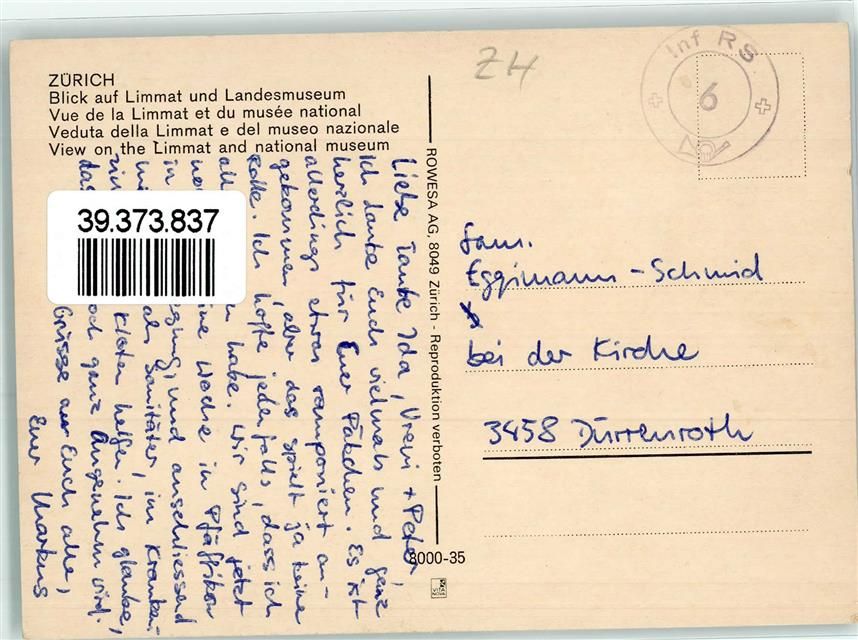 ZÜRICH
Blick auf Limmat und Landesmuseum
Vue de la Limmat et du musée national
Veduta della Limmat e del museo nazionale
View on the Limmat and national museum
ZH
Inf RS
6
39.373.837
Liebe Tante Ida, Vreni + Peter,
Ich danke Euch vielmals und ganz
herzlich für Euer Päkchen. Es ist
allerdings etwas ramponiert an-
gekommen, aber das spielt ja keine
Rolle. Ich hoffe jedenfalls, dass ich
habe. Wir sind jetzt
eine Woche in Pfäffikon
in und anschliessend
als Sanitäter, im Kranken-
Kloten helfen. Ich glaube,
das noch ganz Angenehm wird.
Grüsse an Euch alle,
Euer Markus
ROWESA AG, 8049 Zürich - Reproduktion verboten
8000-35
VITA NOVA
Fam.
Eggimann-Schmid
bei der Kirche
3458 Dürrenroth